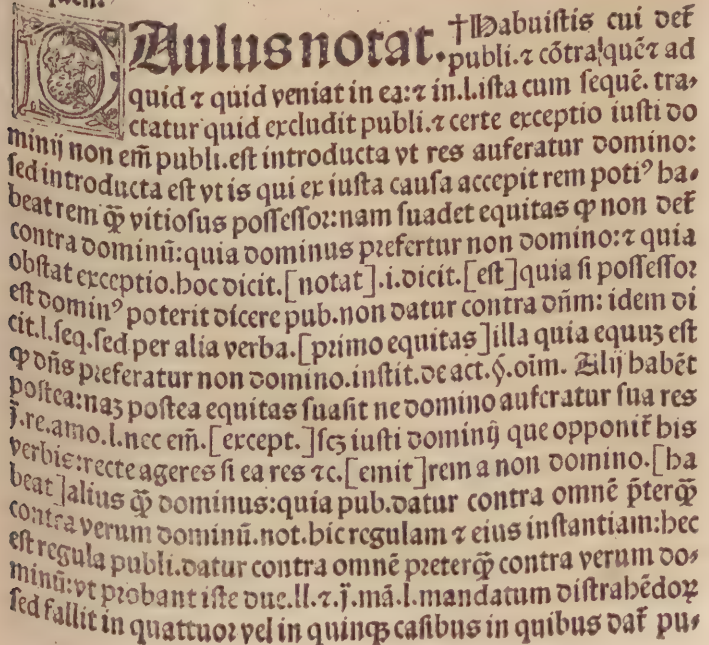 Paulus notat. †Habuistis cui det̃
publi.⁊ cõtra quē⁊ ad
quid ⁊ quid veniat in ea:⁊ in.l.ista cum sequē. tra-
ctatur quid excludit publi.⁊ certe exceptio iusti do
minij non em̃ publi.est introducta vt res auferatur domino:
sed introducta est vt is qui ex iusta causa accepit rem potiꝰ ha-
beat rem q̃ꝫ vitiosus possessor:nam suadet equitas ꝙ non det̃
contra dominū:quia dominus prefertur non domino:⁊ quia
obstat exceptio.hoc dicit.[notat].i.dicit.[est]quia si possessor
est dominꝰ poterit dicere pub.non datur contra dñm: idem di
cit.l.seq.sed per alia verba.[primo equitas]illa quia equuꝫ est
ꝙ dñs preferatur non domino.instit.de act.§.oīm. Alij habēt
postea:naꝫ postea equitas suasit ne domino auferatur sua res
j̃.re.amo.l.nec em̃.[except.]scꝫ iusti dominij que opponit̃ his
verbis:recte ageres si ea res ⁊c.[emit]rem a non domino.[ha
beat]alius q̃ꝫ dominus:quia pub.datur contra omnē p̃terq̃ꝫ
contra verum dominū.not.hic regulam ⁊ eius instantiam:hec
est regula publi.datur contra omnē preterq̃ꝫ contra verum do-
minū:vt probant iste due.ll.⁊.j̃.mā.l.mandatum distrahēdoꝝ
sed fallit in quattuor vel in quinqꝫ casibus in quibus dat̃ pu-